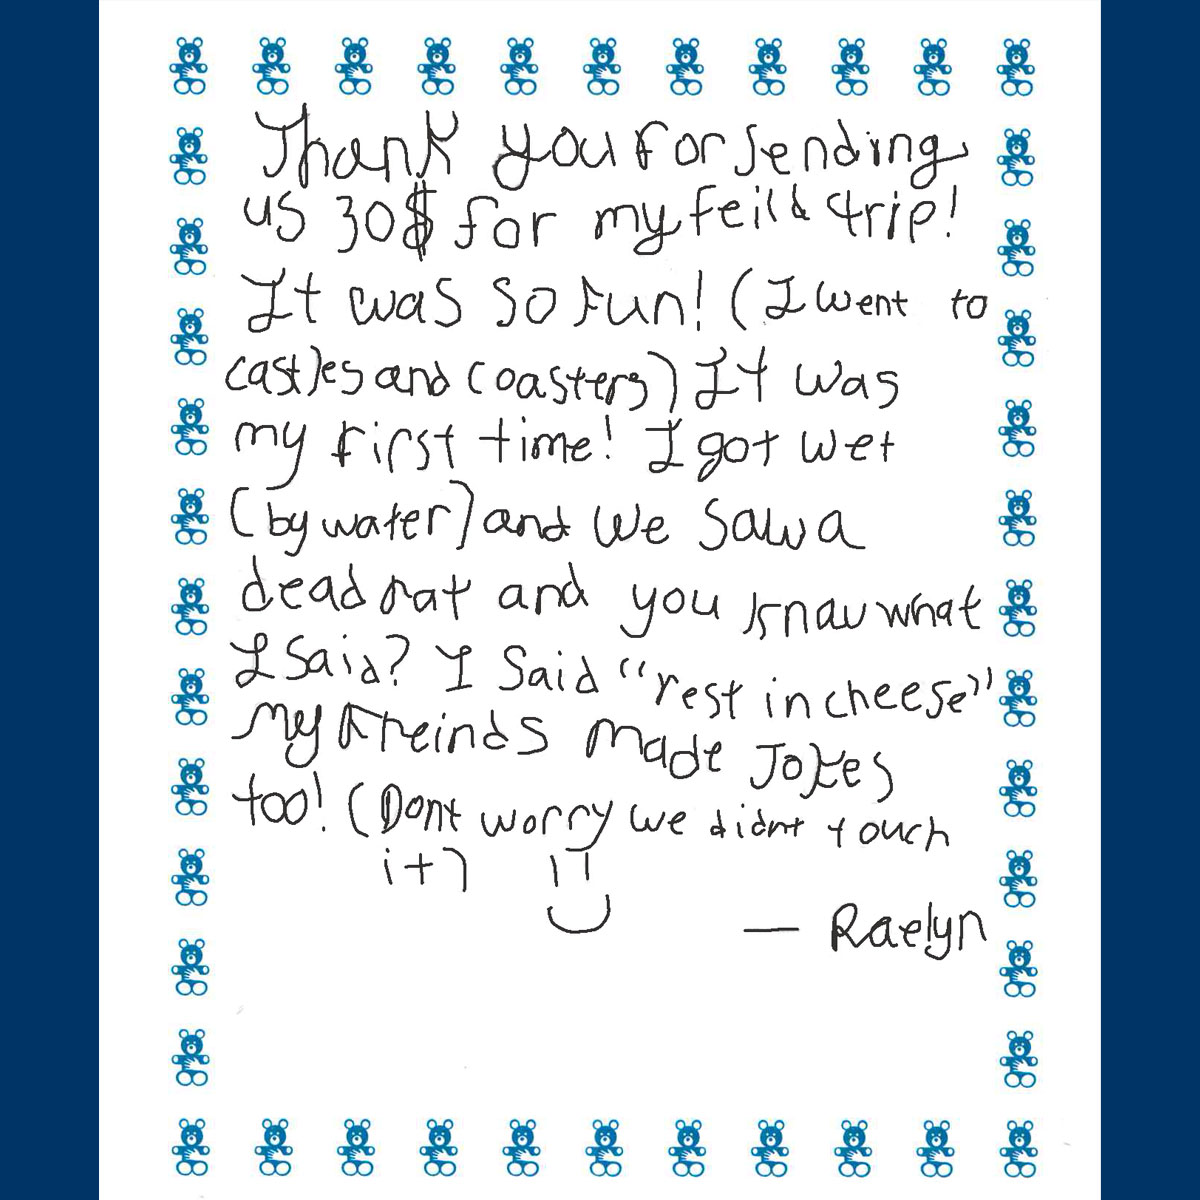 Thank you for sending
us 30$ for my feild trip!
It was so fun! (I went to
castles and coasters) It was
my first time! I got wet
(by water) and We saw a
dead rat and you knaw what
I said? I said "rest in cheese"
My freinds made Jokes
too! (Dont worry we didnt touch
it)
— Raelyn